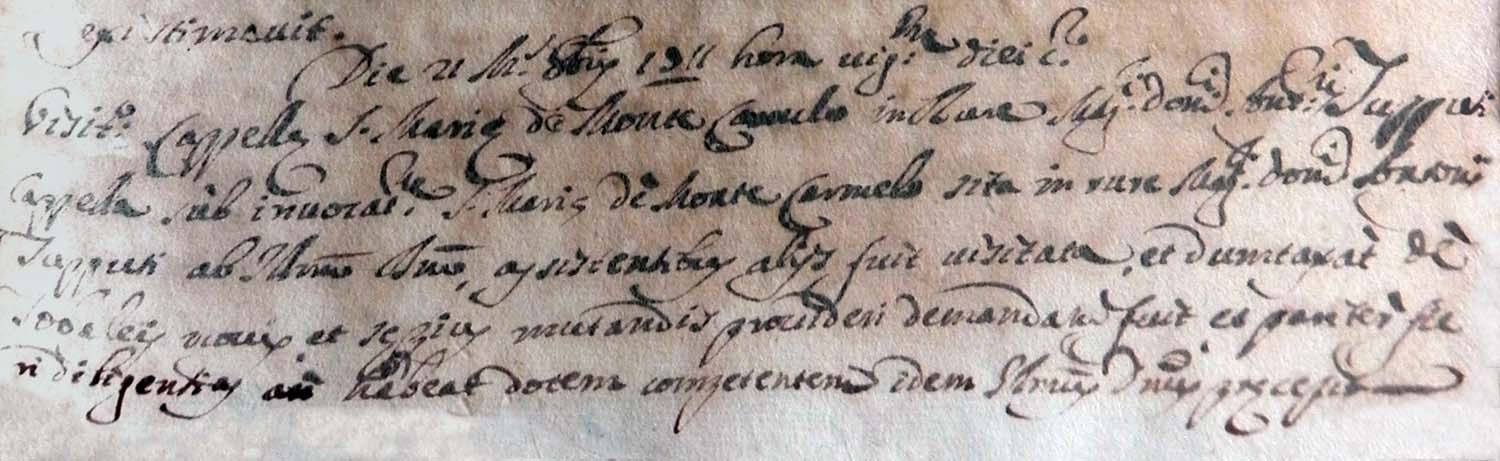 existimavit.
Die 21 M.s 8bris 1811 hora vig.ma diei c.a
Visit.o Cappellę S. Marię de Monte Carmelo in Rure Mag.ci dom.ci Iupputi
Cappella sub invocat.ne S. Marię dè Monte Carmelo sita in rure Mag.ci dom.ci
Iupputi ab Illmo Dno, assistentibus alijs fuit visitata, et dumtaxat dè
tobaleis novis, et sępius mutandis provideri demandatū fuit et pariter fie
ri diligentias an habeat dotem competentem idem Illmus Dnus pręcepit